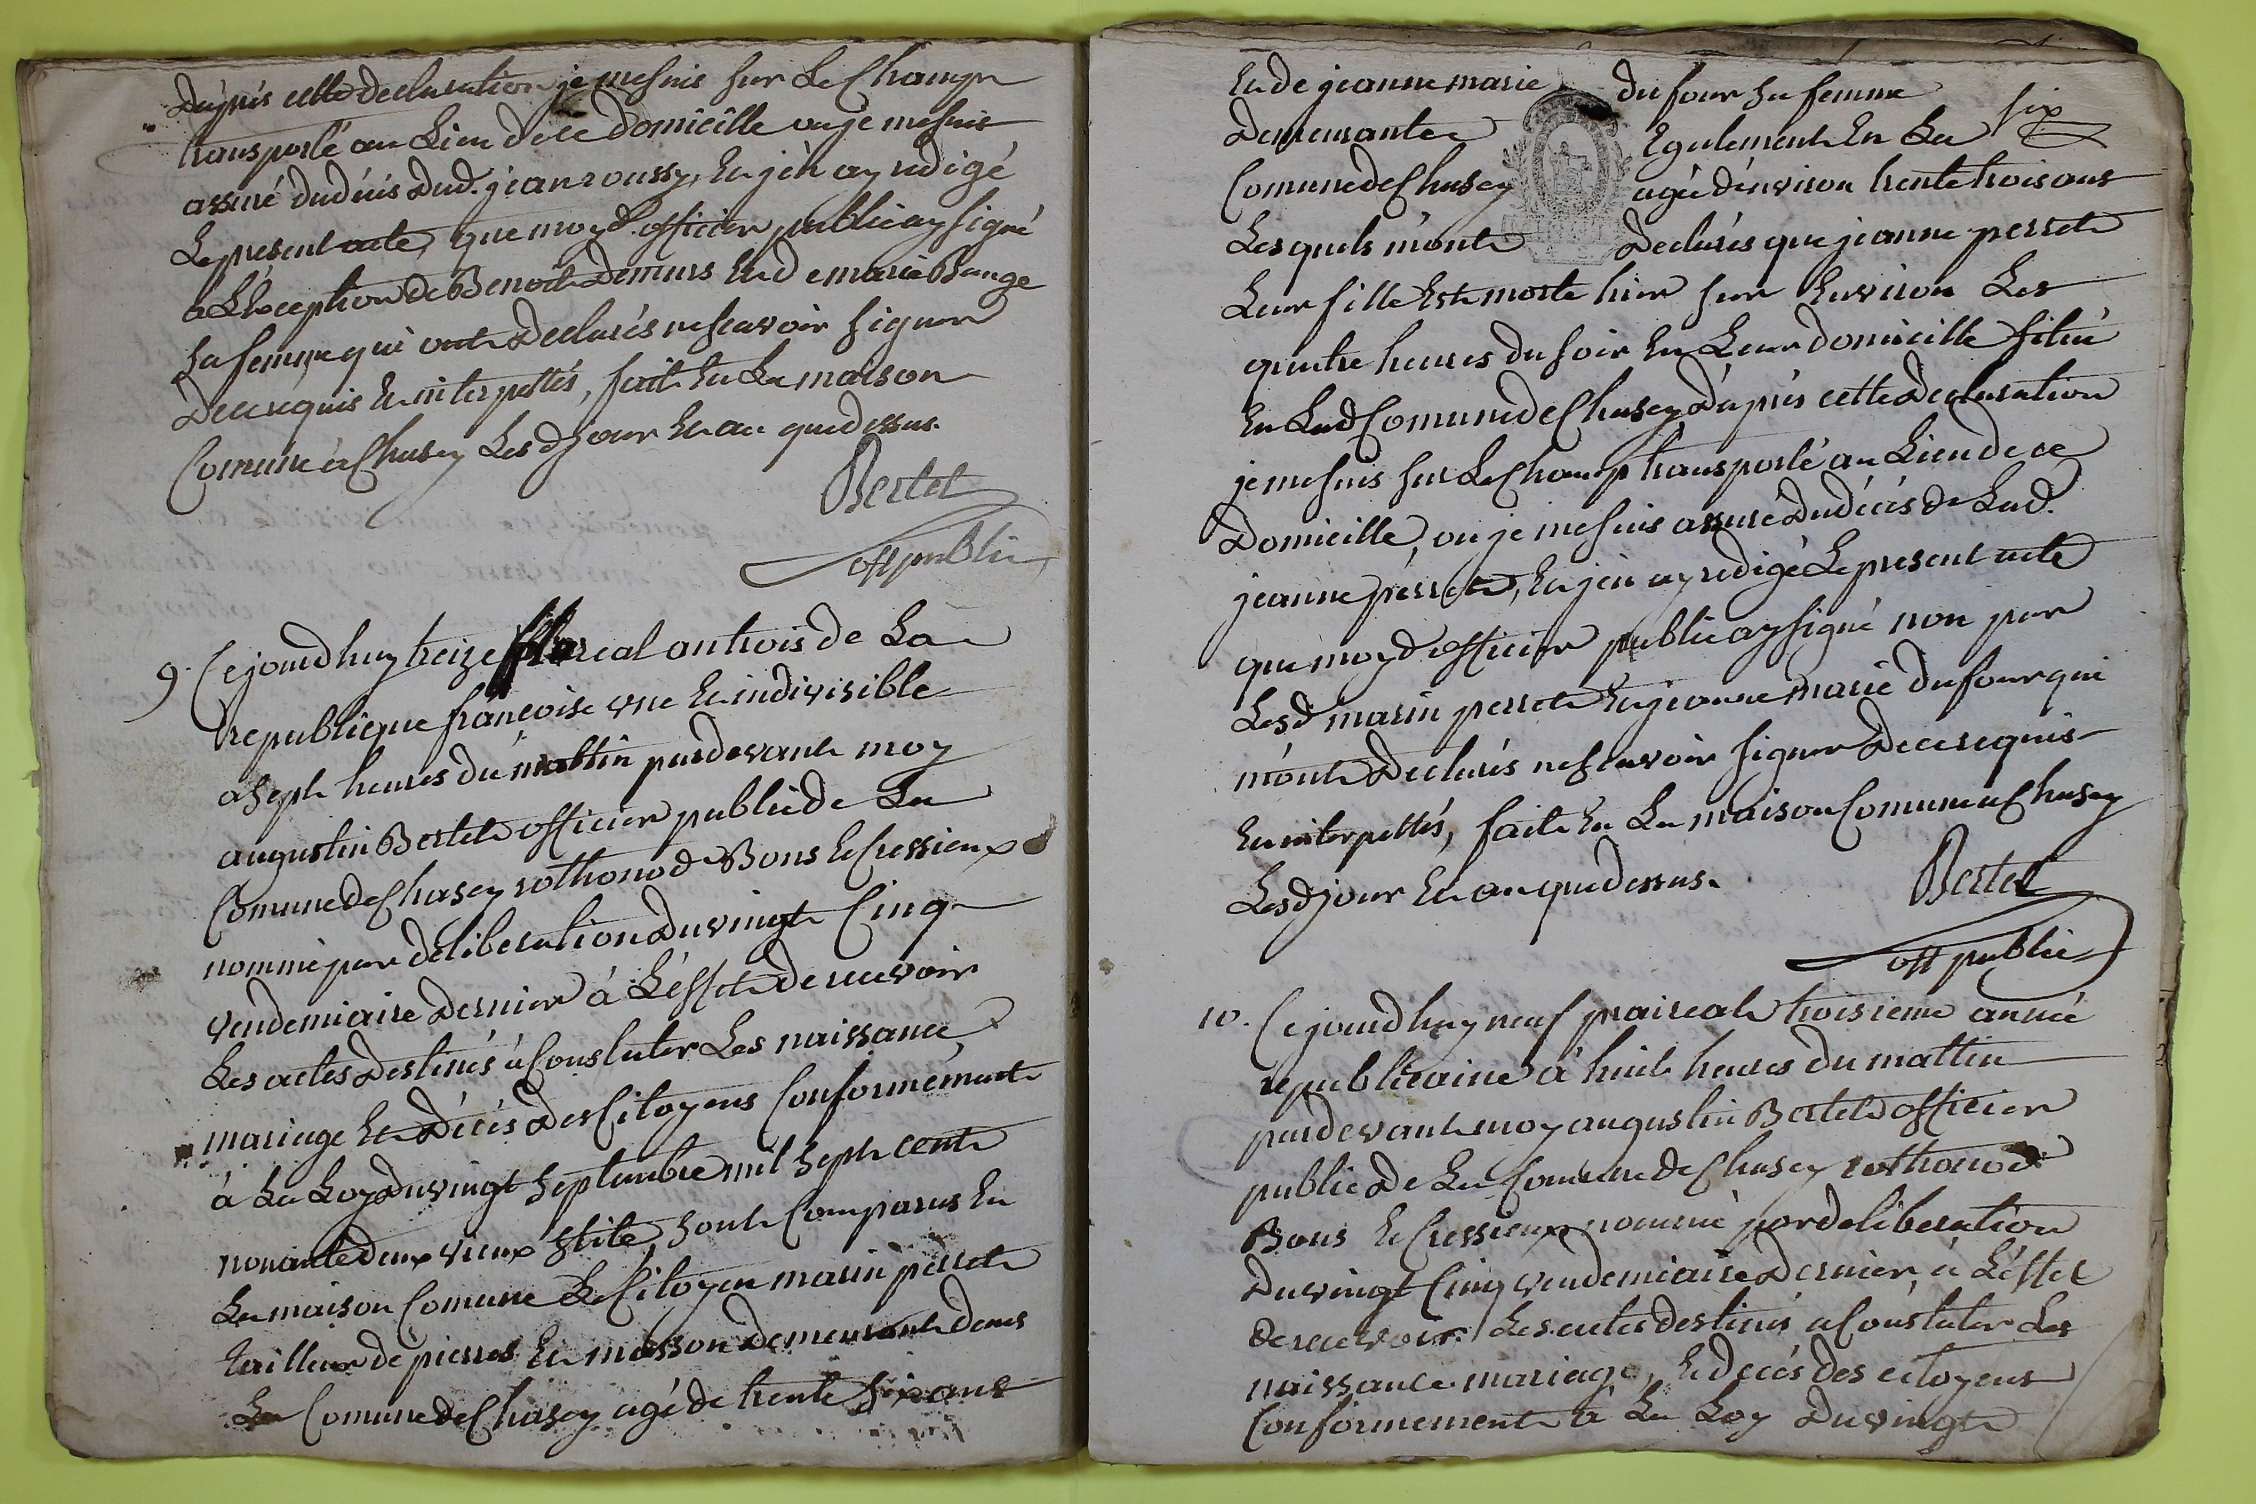 Dáprés cette declaration je me suis sur Le Champ
transporté au Lieu de ce domicille ou je me suis
assuré du décés dud. jean roussy, Et jen ay redigé
Le présent acte, que moyd. officier public ay signé
à L'Exception de Benoit Demurs Et de marie Bunge
sa femme qui ont Declarés ne scavoir signer
De ce requis Et interpellés, fait En La maison
Comune à Chasey Les d jour Et an que dessus.
Bertet
off public
9. Ce jourdhuy treize floreal an trois de La
republique françoise une Et indivisible
a sept heures du mattin pardevant moy
augustin Bertet officier public de La
Comune de Chasey rothonod Bons Et Cressieux
nommé par deliberation du vingt Cinq
vendemiaire dernier à L'éffet de recevoir
Les actes destinés à Constater Les naissance,
mariage Et Décés des Citoyens Conformément
à La Loy du vingt septembre mil sept cent
nonante deux vieux stile, sont Comparus En
La maison Comune Le Citoyen marin perret
tailleur de pierres Et masson demeurant dans
La Comune de Chasey agé de trente six ans
six
Et de jeanne marie dufour sa femme
Demeurante Egalement En La
Comune de Chasey agée d'énviron trente trois ans
Les quels m'ont Declarés que jeanne perret
Leur fille Est morte hier sur Environ Les
quatre heures du soir En Leur domicille situé
En Lad Comune de Chasey, D'aprés cette Declaration
je me suis sur Le Champ transporté au Lieu de ce
Domicille, ou je me suis assuré du décés de Lad.
jeanne perret, Et jen ay redigé Le present acte
que moyd officier public ay signé non par
Lesd marin perret Et jeanne marie dufour qui
m'ont Declarés ne scavoir signer De ce requis
Et interpellés, fait En La maison Comune a Chasey
Lesd jour Et an que dessus.
Bertet
off public
10. Ce jourdhuy neuf prairealt troisieme année
republicaine à huit heures du mattin
pardevant moy augustin Bertet officier
public de La Comune de Chasey rothonod
Bons Et Cressieux nommé par deliberation
Du vingt Cinq vendemiaire dernier, à L'éffet
de recevoir Les actes destinés a Constater Les
naissance mariage, Et décés des citoyens
Conformement à La Loy Du vingt